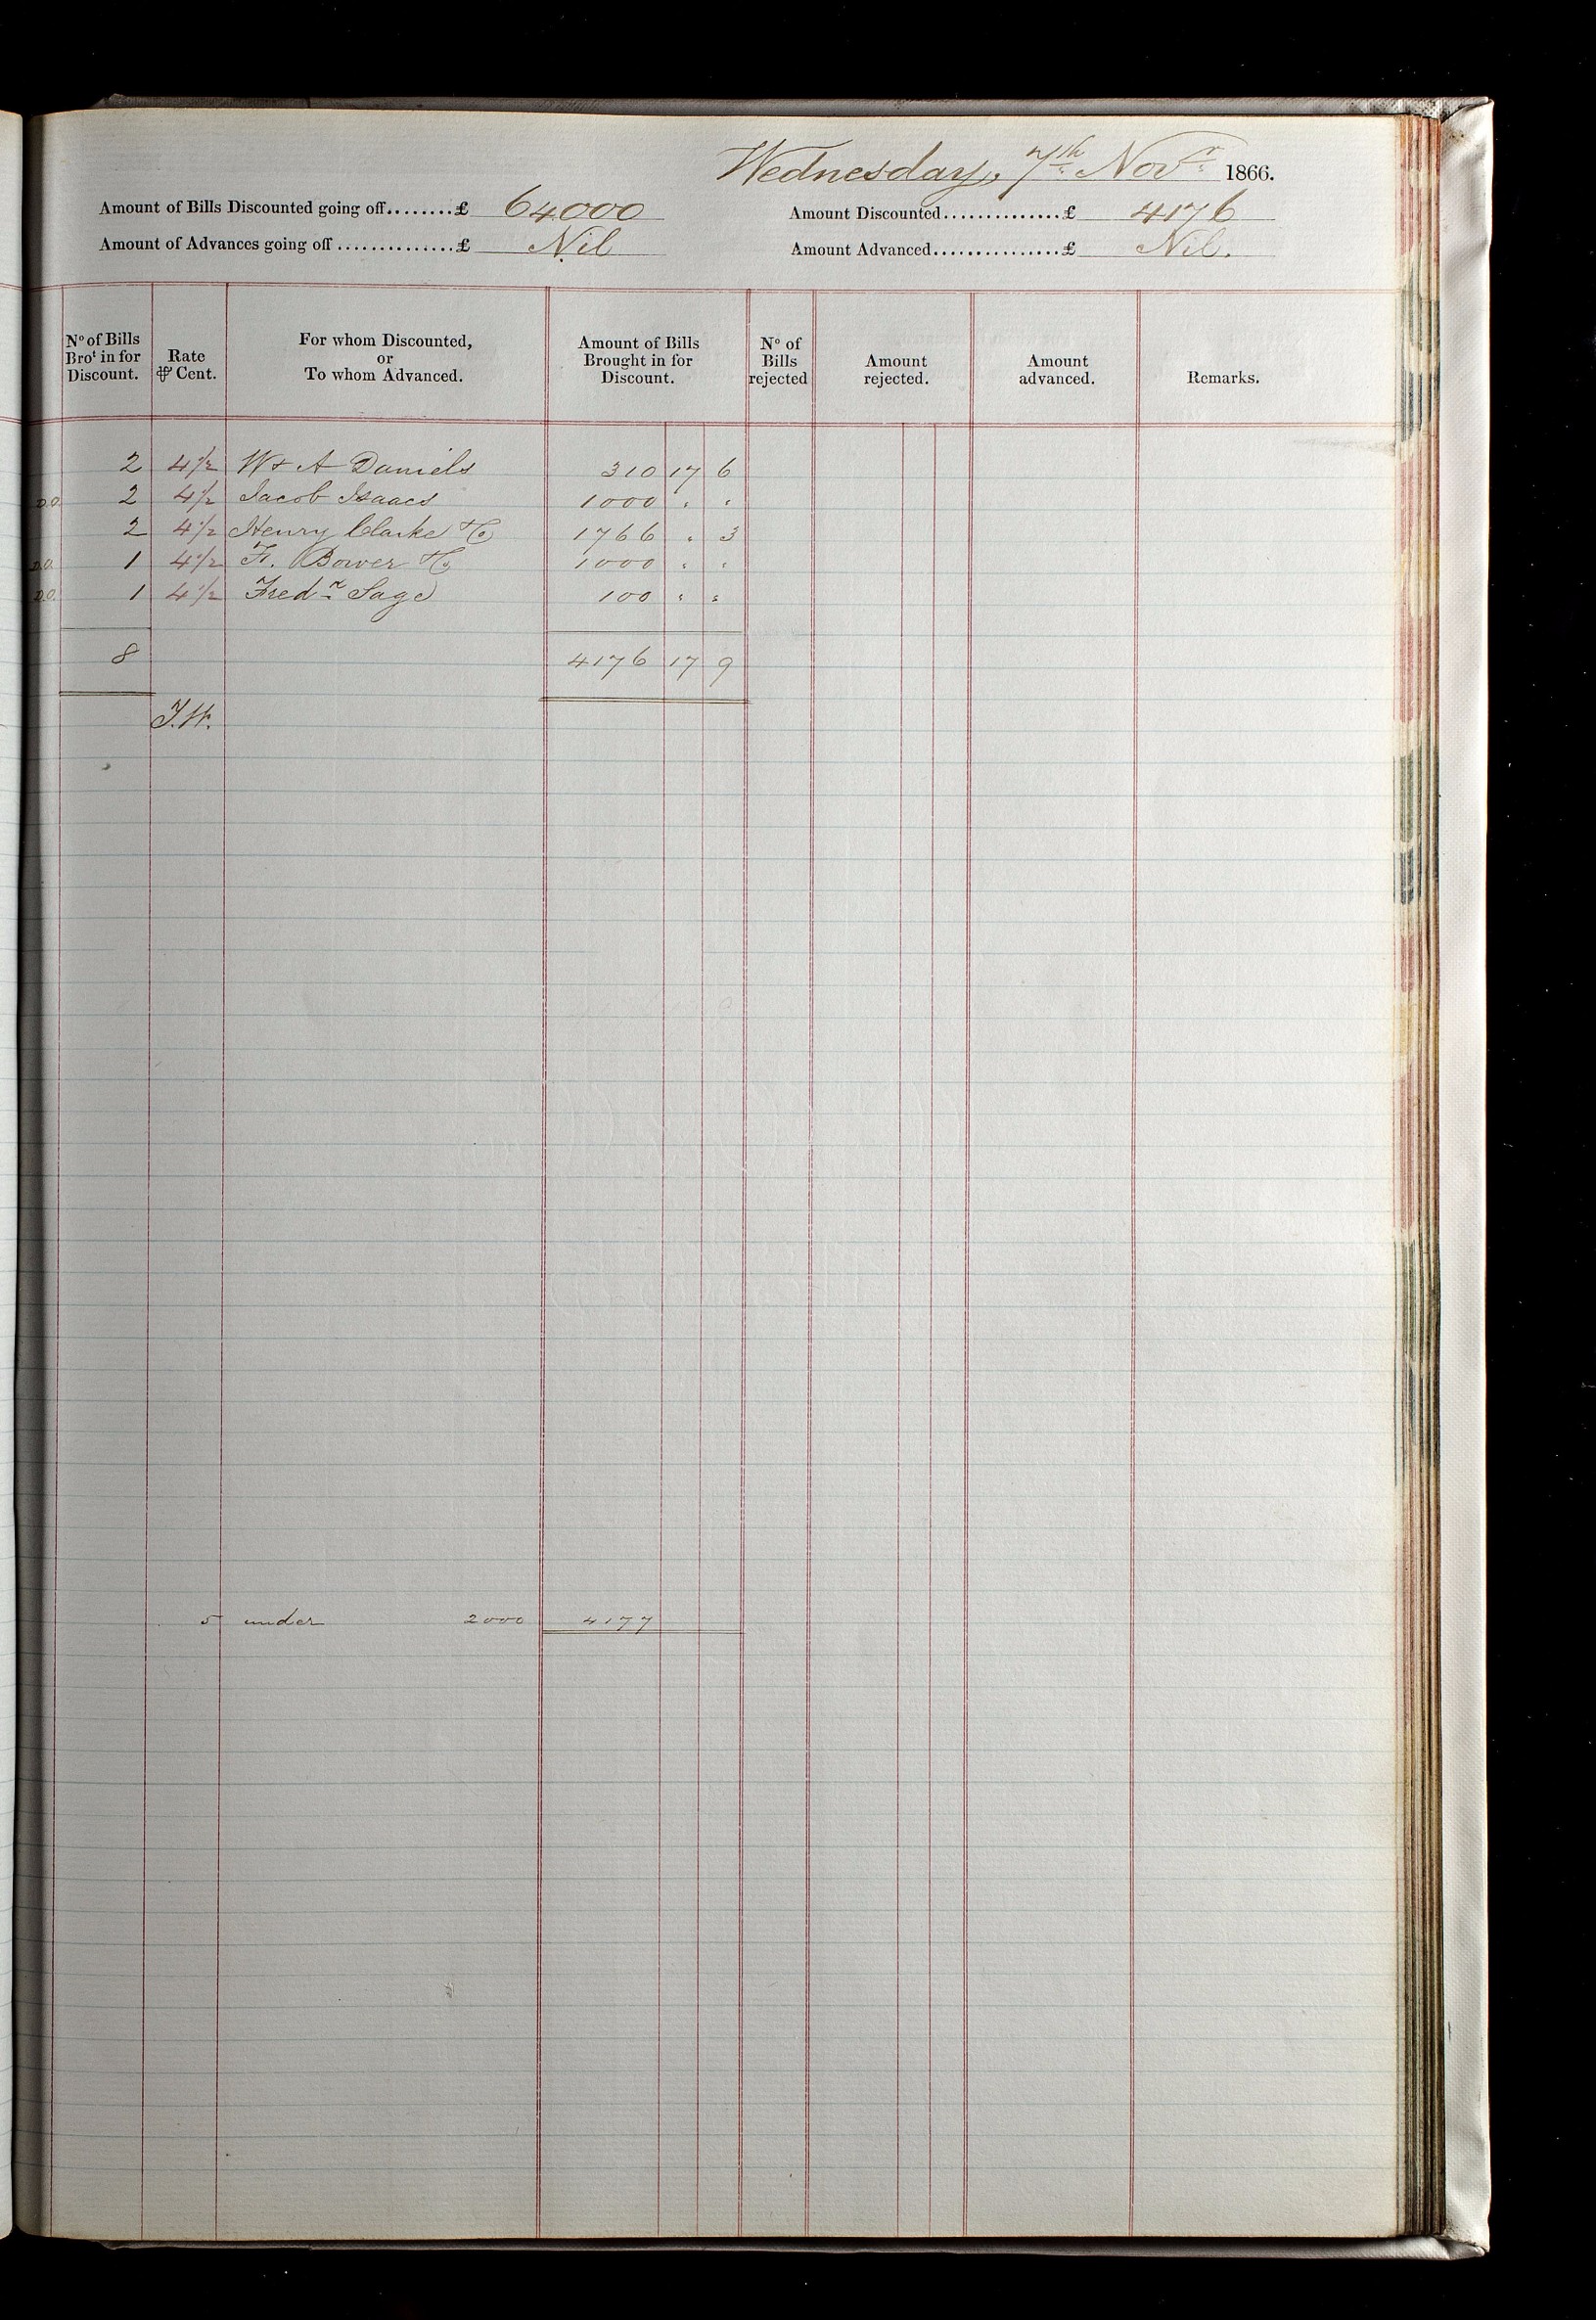 Wednesday, 7th Novr 1866.
Amount of Bills Discounted going off........£ 64000 Amount Discounted..............£ 4176
Amount of Advances going off..............£ Nil Amount Advanced...............£ Nil.
No of Bills Brot in for Discount. Rate ⅌ Cent. For whom Discounted, or To whom Advanced. Amount of Bills Brought in for Discount. No of Bills rejected Amount rejected. Amount advanced. Remarks.
2 4½ W & A Daniels 310 17 6
D.O. 2 4½ Jacob Isaacs 1000 " "
2 4½ Henry Clarke & Co 1766 " 3
D.O. 1 4½ F. Bower & Co 1000 " "
D.O. 1 4½ Fredk Sage 100 " "
8 4176 17 9
J.W.
5 under 2000 4177